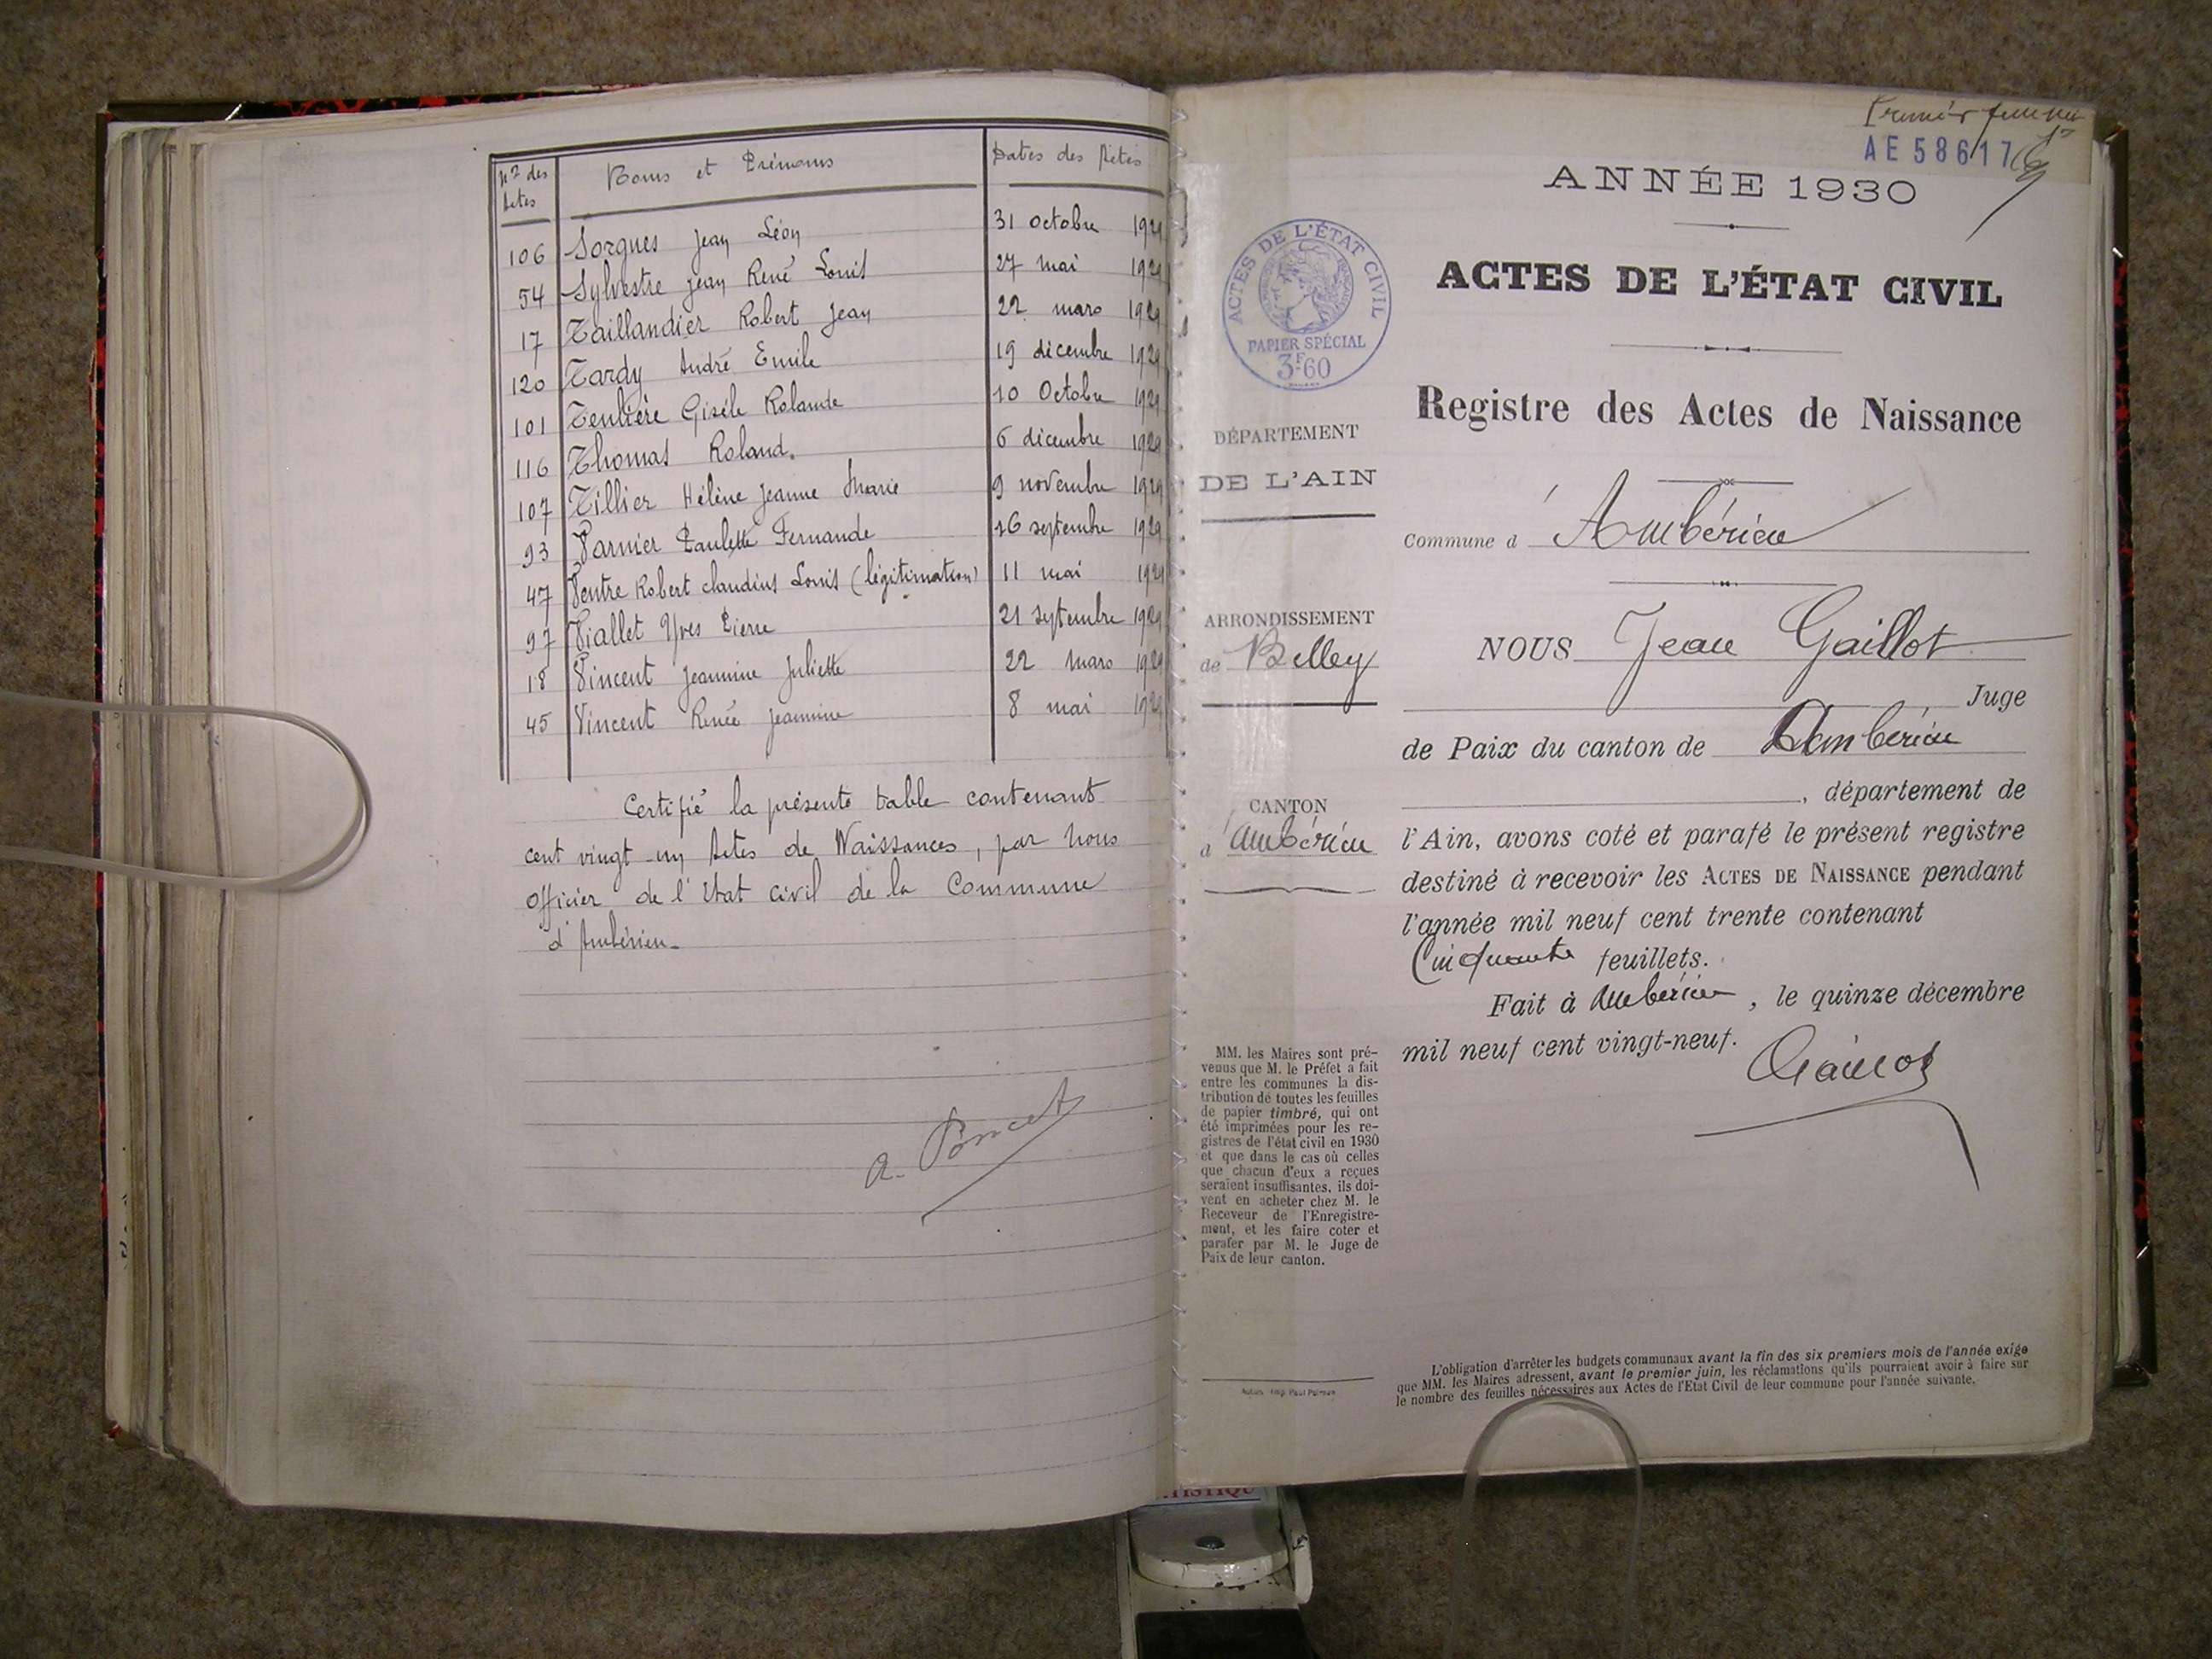 Nos des Actes Noms et Prénoms Dates des Actes
106 Sorgues Jean Léon 31 Octobre 1929
54 Sylvestre Jean René Louis 27 mai 1929
17 Taillandier Robert Jean 22 mars 1929
120 Tardy André Emile 19 décembre 1929
101 Tenlière Gisèle Rolande 10 Octobre 1929
116 Thomas Roland. 6 décembre 1929
107 Tillier Hélène Jeanne Marie 9 novembre 1929
93 Varnier Paulette Fernande 16 septembre 1929
47 Ventre Robert Claudius Louis (légitimation) 11 mai 1929
97 Viallet Yves Pierre 21 septembre 1929
18 Vincent Jeannine Juliette 22 mars 1929
45 Vincent Renée Jeannine 8 mai 1929
Certifié la présente table contenant
cent vingt-un Actes de Naissances, par Nous
Officier de l'Etat civil de la Commune
d'Ambérieu.
A. Poncet
Premier feuillet
AE 58617
ANNÉE 1930
ACTES DE L'ÉTAT CIVIL
ACTES DE L'ÉTAT CIVIL
PAPIER SPÉCIAL
3F60
Registre des Actes de Naissance
DÉPARTEMENT
DE L'AIN
Commune d'Ambérieu
ARRONDISSEMENT
de Belley
NOUS Jean Gaillot
Juge
de Paix du canton de Ambérieu
, département de
CANTON
d'Ambérieu
l'Ain, avons coté et parafé le présent registre
destiné à recevoir les ACTES DE NAISSANCE pendant
l'année mil neuf cent trente contenant
Cinquante feuillets.
Fait à Ambérieu, le quinze décembre
mil neuf cent vingt-neuf.
Gaillot
MM. les Maires sont pré-
venus que M. le Préfet a fait
entre les communes la dis-
tribution de toutes les feuilles
de papier timbré, qui ont
été imprimées pour les re-
gistres de l'état civil en 1930
et que dans le cas où celles
que chacun d'eux a reçues
seraient insuffisantes, ils doi-
vent en acheter chez M. le
Receveur de l'Enregistre-
ment, et les faire coter et
parafer par M. le Juge de
Paix de leur canton.
L'obligation d'arrêter les budgets communaux avant la fin des six premiers mois de l'année exige
que MM. les Maires adressent, avant le premier juin, les réclamations qu'ils pourraient avoir à faire sur
le nombre des feuilles nécessaires aux Actes de l'Etat Civil de leur commune pour l'année suivante.